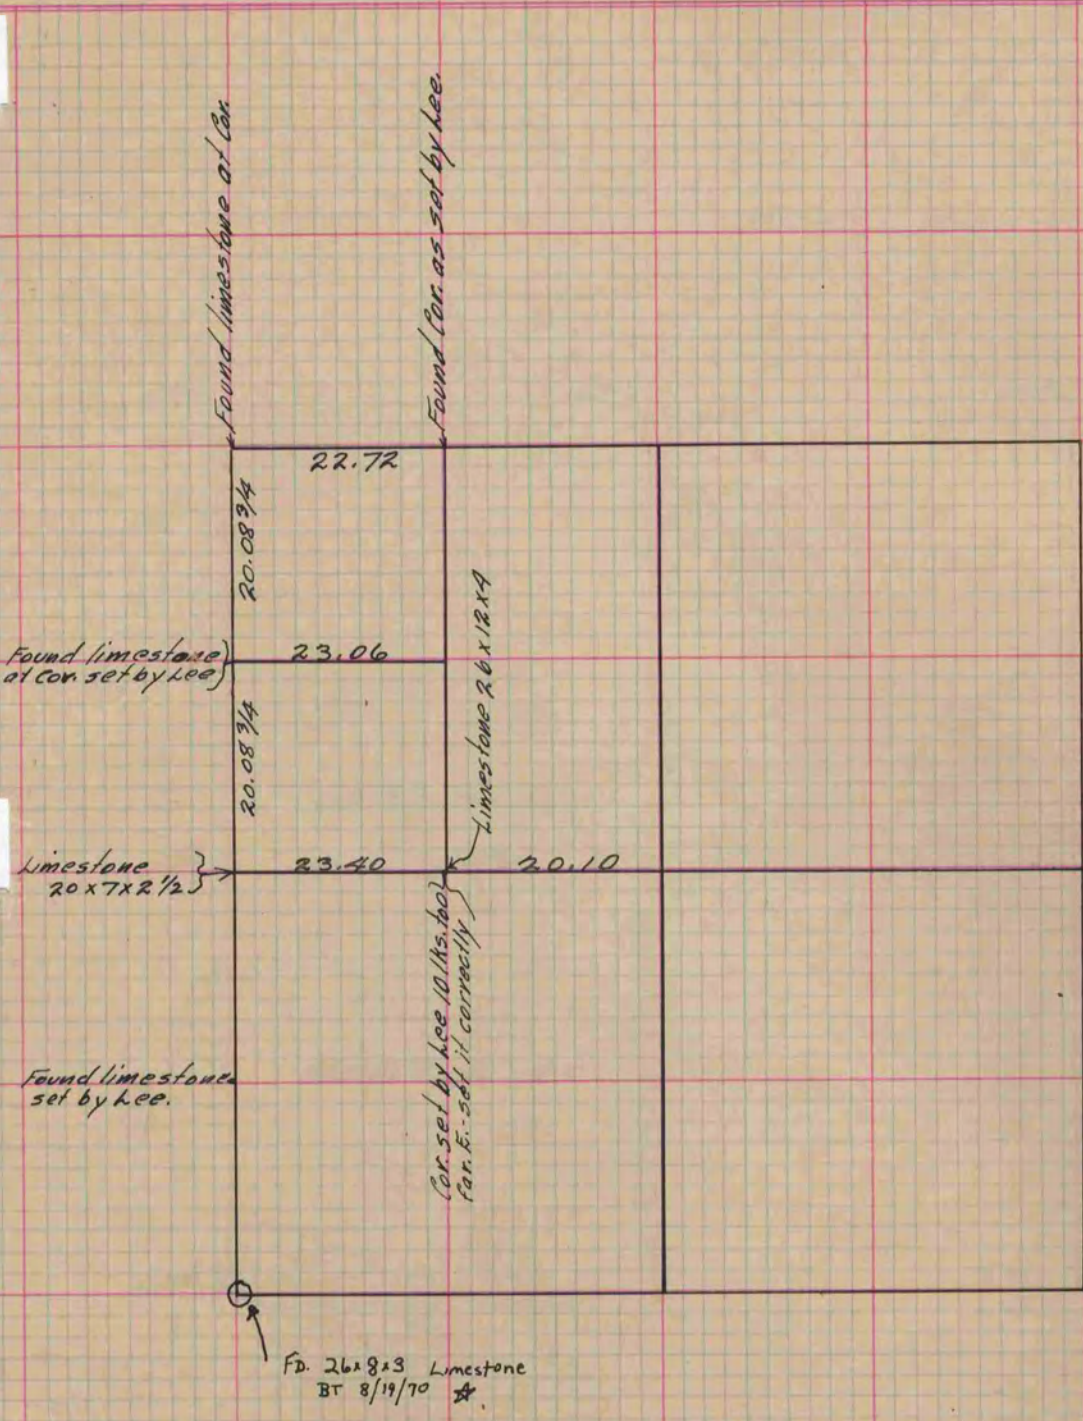 Found limestone at Cor.
Found Cor. as set by Lee.
22.72
20.08 3/4
Found limestone
at Cor. set by Lee
23.06
Limestone 26 x 12 x 4
20.08 3/4
Limestone
20 x 7 x 2 1/2
23.40
20.10
Cor. set by Lee 10 lks. too
far. E. - set it correctly
Found limestone
set by Lee.
FD. 26x8x3 Limestone
BT 8/19/70